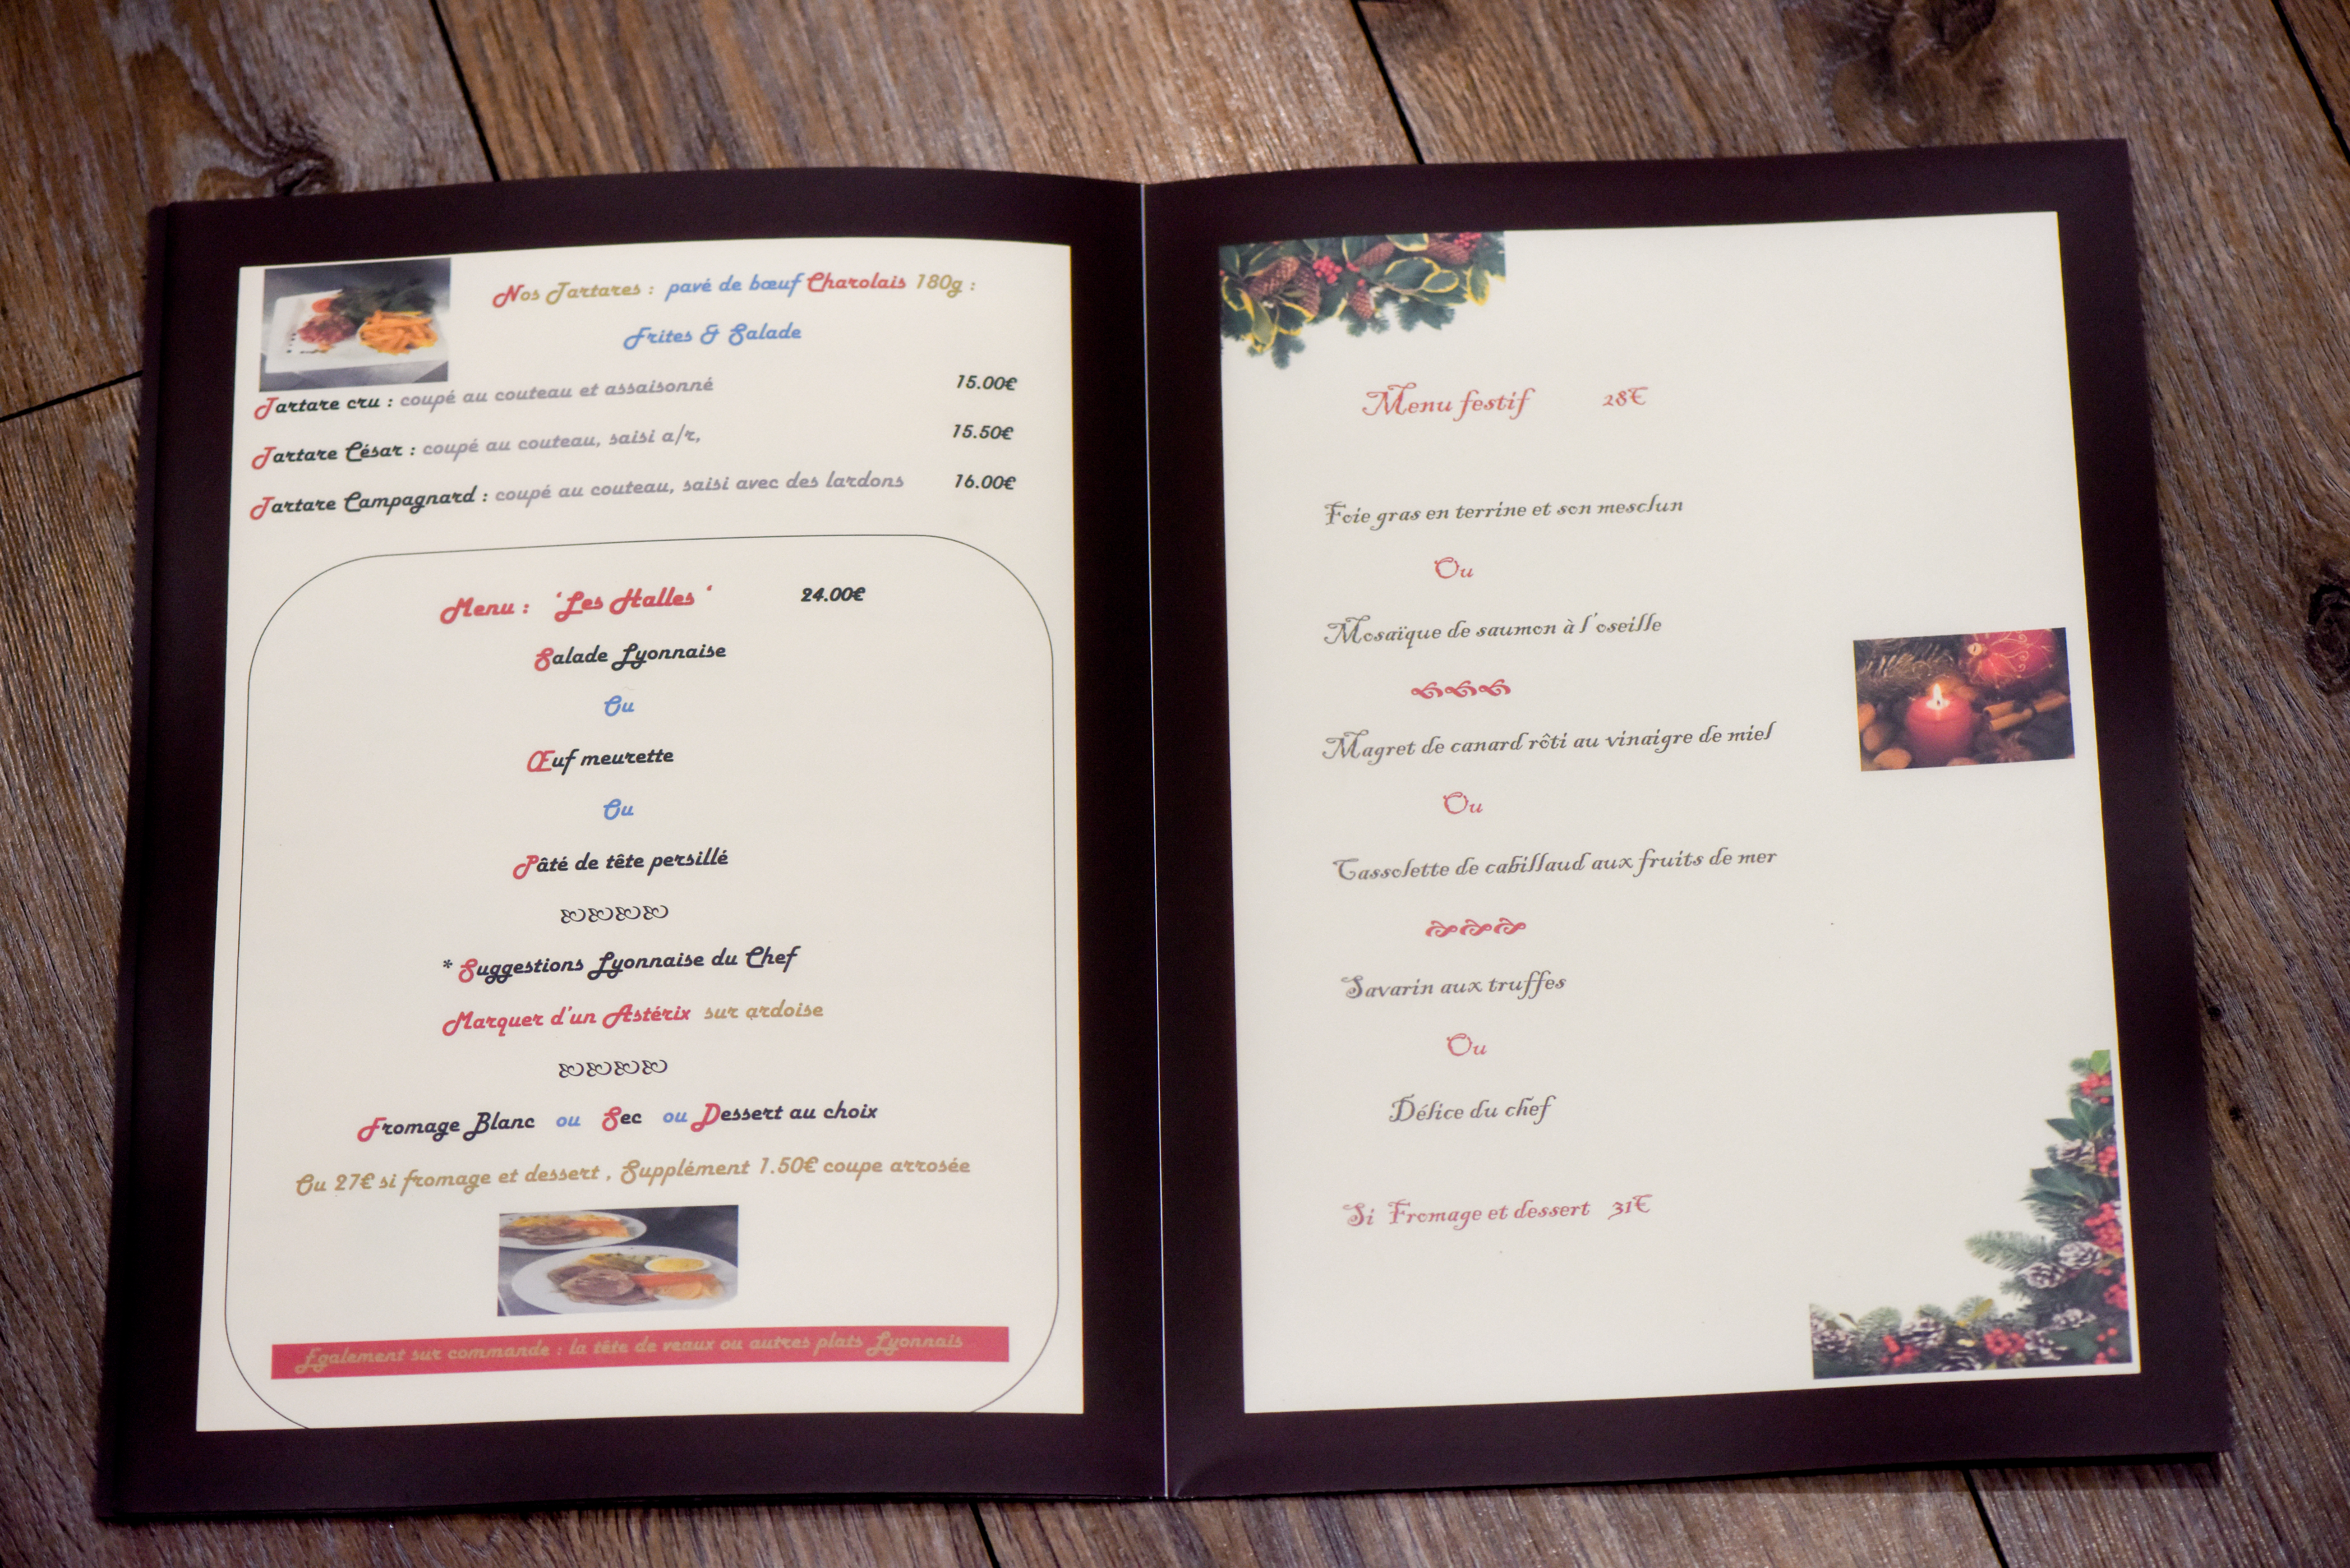 Nos Tartares : pavé de bœuf Charolais 180g :
Frites & Salade
Tartare cru : coupé au couteau et assaisonné 15.00€
Tartare César : coupé au couteau, saisi a/r, 15.50€
Tartare Campagnard : coupé au couteau, saisi avec des lardons 16.00€
Menu : ‘Les Halles ‘ 24.00€
Salade Lyonnaise
Ou
Œuf meurette
Ou
Pâté de tête persillé
* Suggestions Lyonnaise du Chef
Marquer d'un Astérix sur ardoise
Fromage Blanc ou Sec ou Dessert au choix
Ou 27€ si fromage et dessert , Supplément 1.50€ coupe arrosée
Egalement sur commande : la tête de veaux ou autres plats Lyonnais
Menu festif 28€
Foie gras en terrine et son mesclun
Ou
Mosaïque de saumon à l'oseille
Magret de canard rôti au vinaigre de miel
Ou
Cassolette de cabillaud aux fruits de mer
Savarin aux truffes
Ou
Délice du chef
Si Fromage et dessert 31€